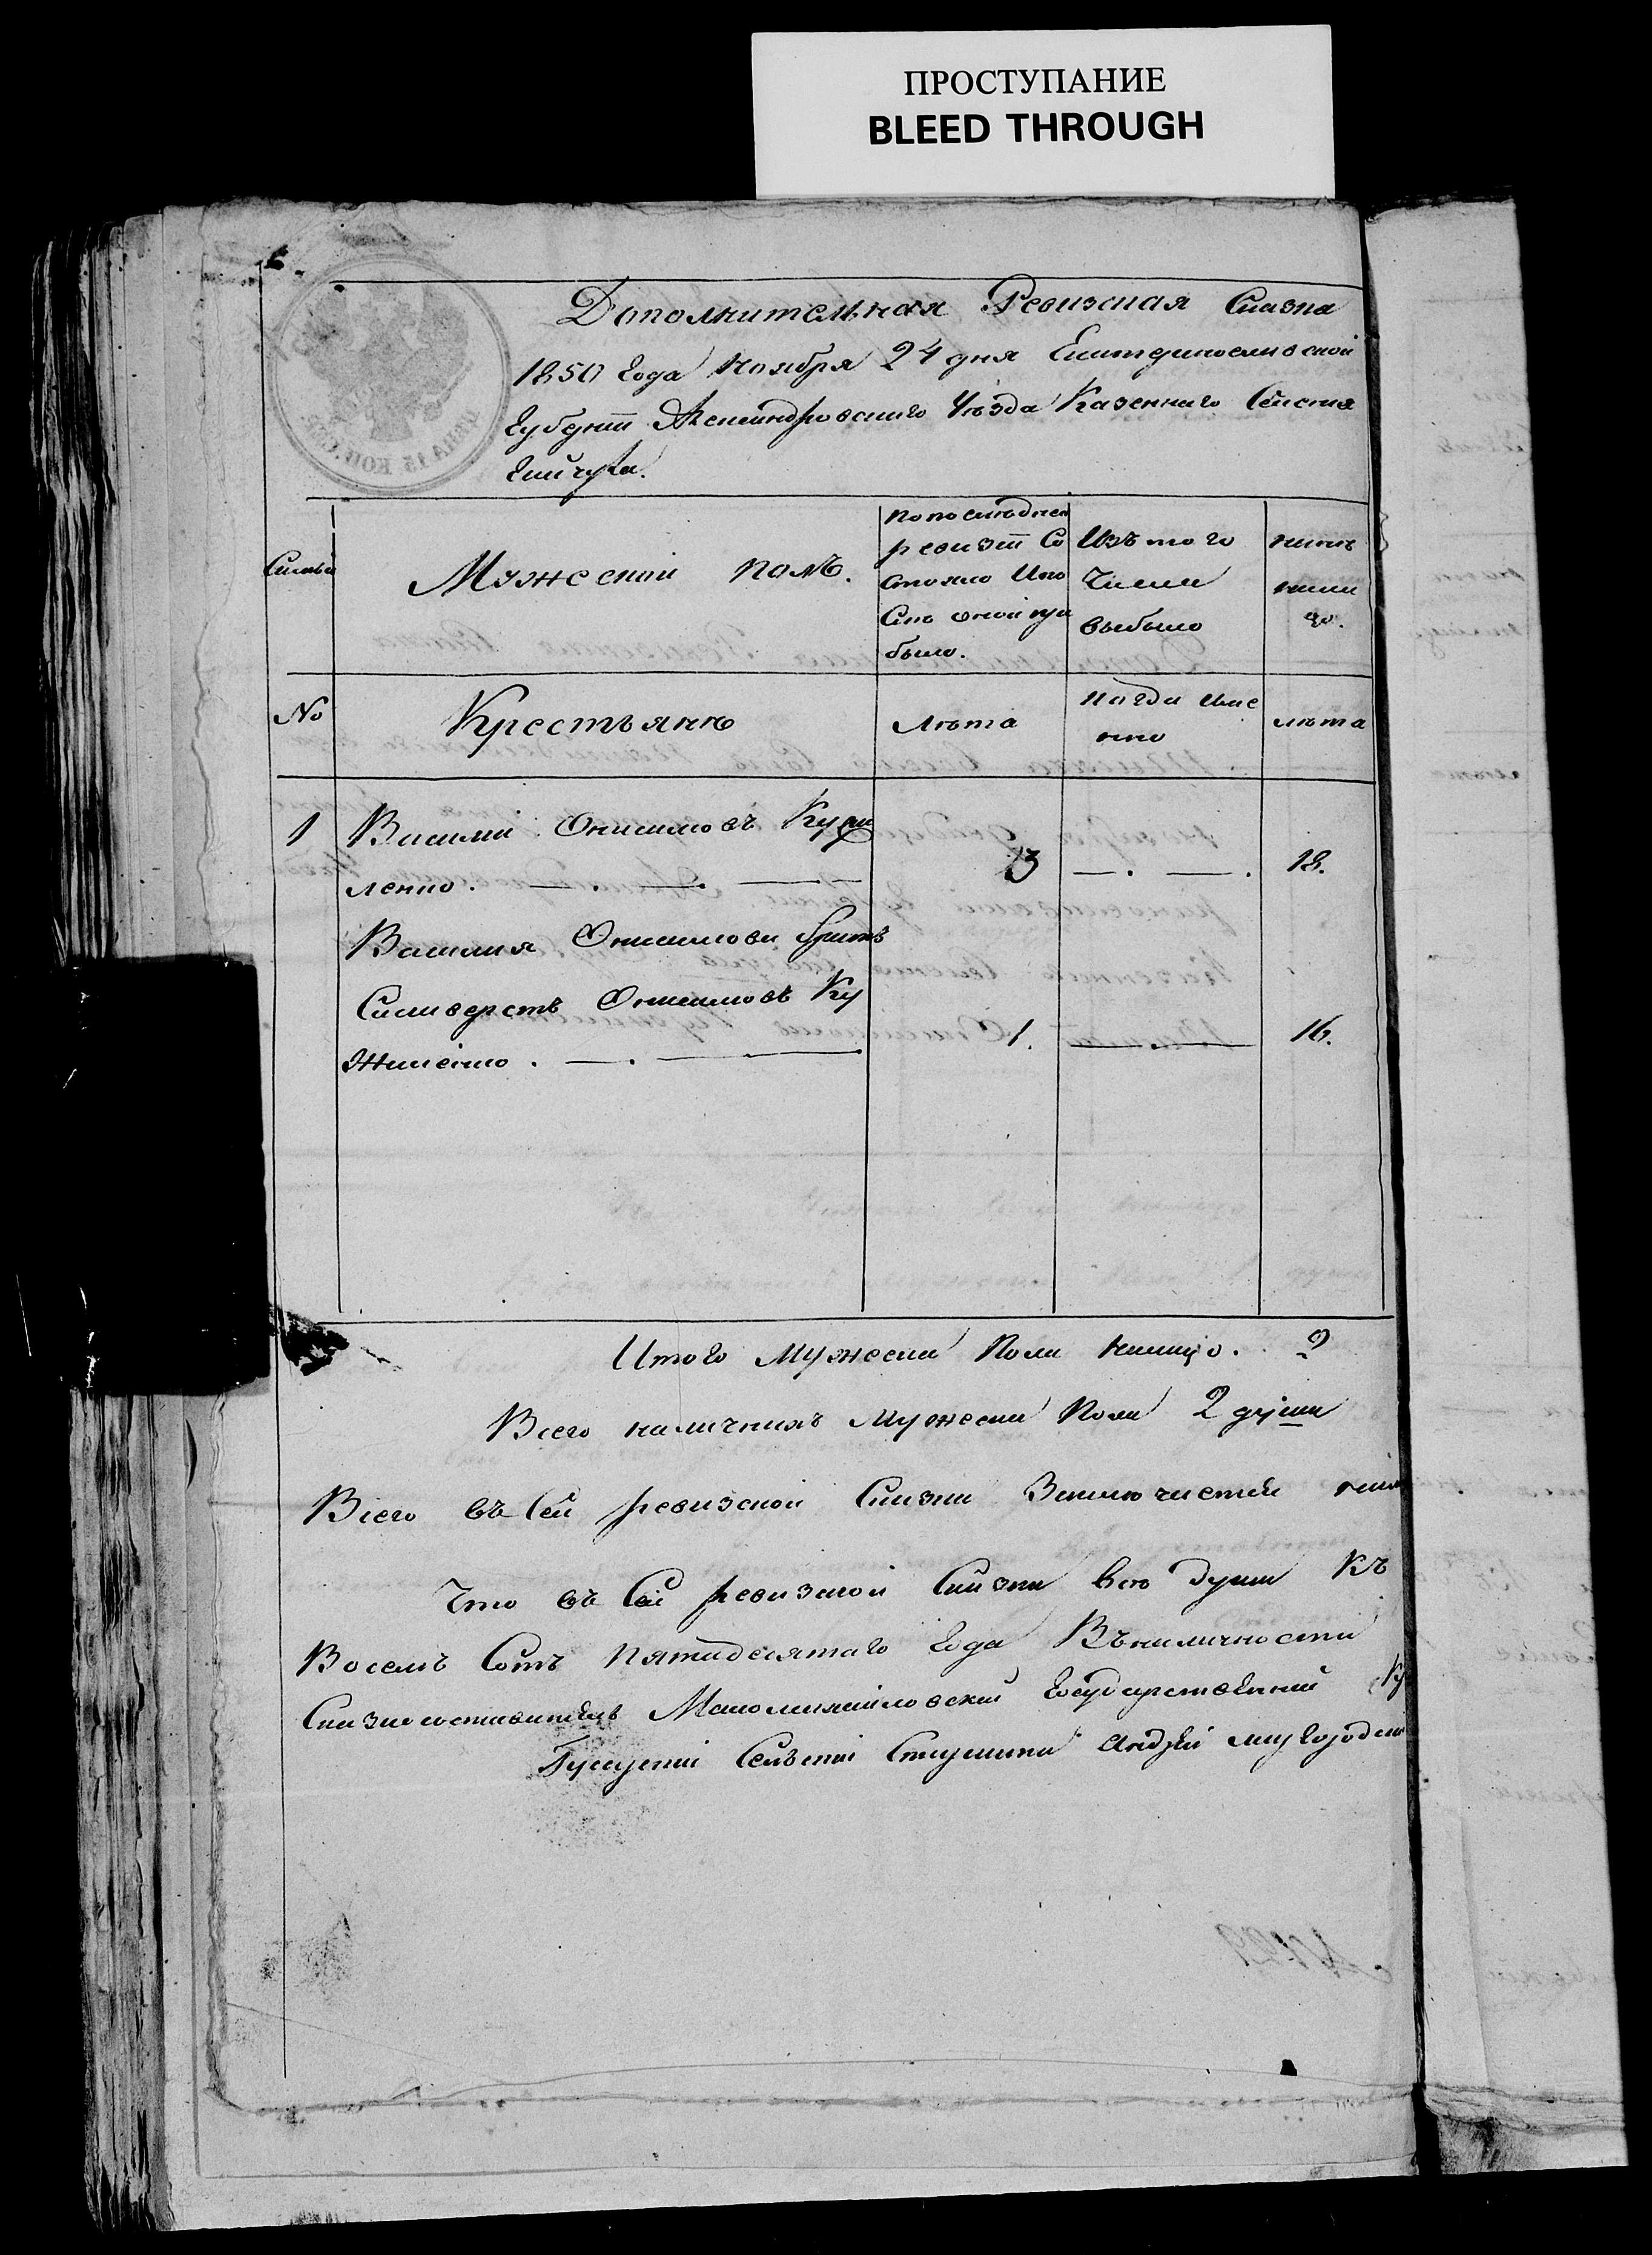 ПРОСТУПАНИЕ
BLEED THROUGH
Дополнительная Ревизская Сказка
1850 года Ноября 24 дня Екатеринославской
Губернии Александровского Уѣзда Казенного Селения
Семьи
Мужеский полъ.
По последней
ревизии Со
стояло и по
слѣ оной при
было.
Изъ того
Числа
выбыло
нынѣ
нали
цо.
No
Крестьянѣ
Лѣта
Когда име
нно
лѣта
1
Василий Онисимовъ
ленко.
13
18.
Василия Онисимова братъ
Силиверстъ Онисимовъ Ку
1.
16.
Итого Мужеска Пола налицо. 2
Всего наличныхъ Мужеска Пола 2 души
Всего въ Сей ревизской Сказки Заключается
Что въ Сей ревизской Сказки всѣ Души Къ
Восемъ Сотъ Пятидесятаго года Въналичности
Сказкосоставитель Маломихайловский Государственный
Сельский Старшина Андрей
ЦѢНА 15 КОП. СЕР.